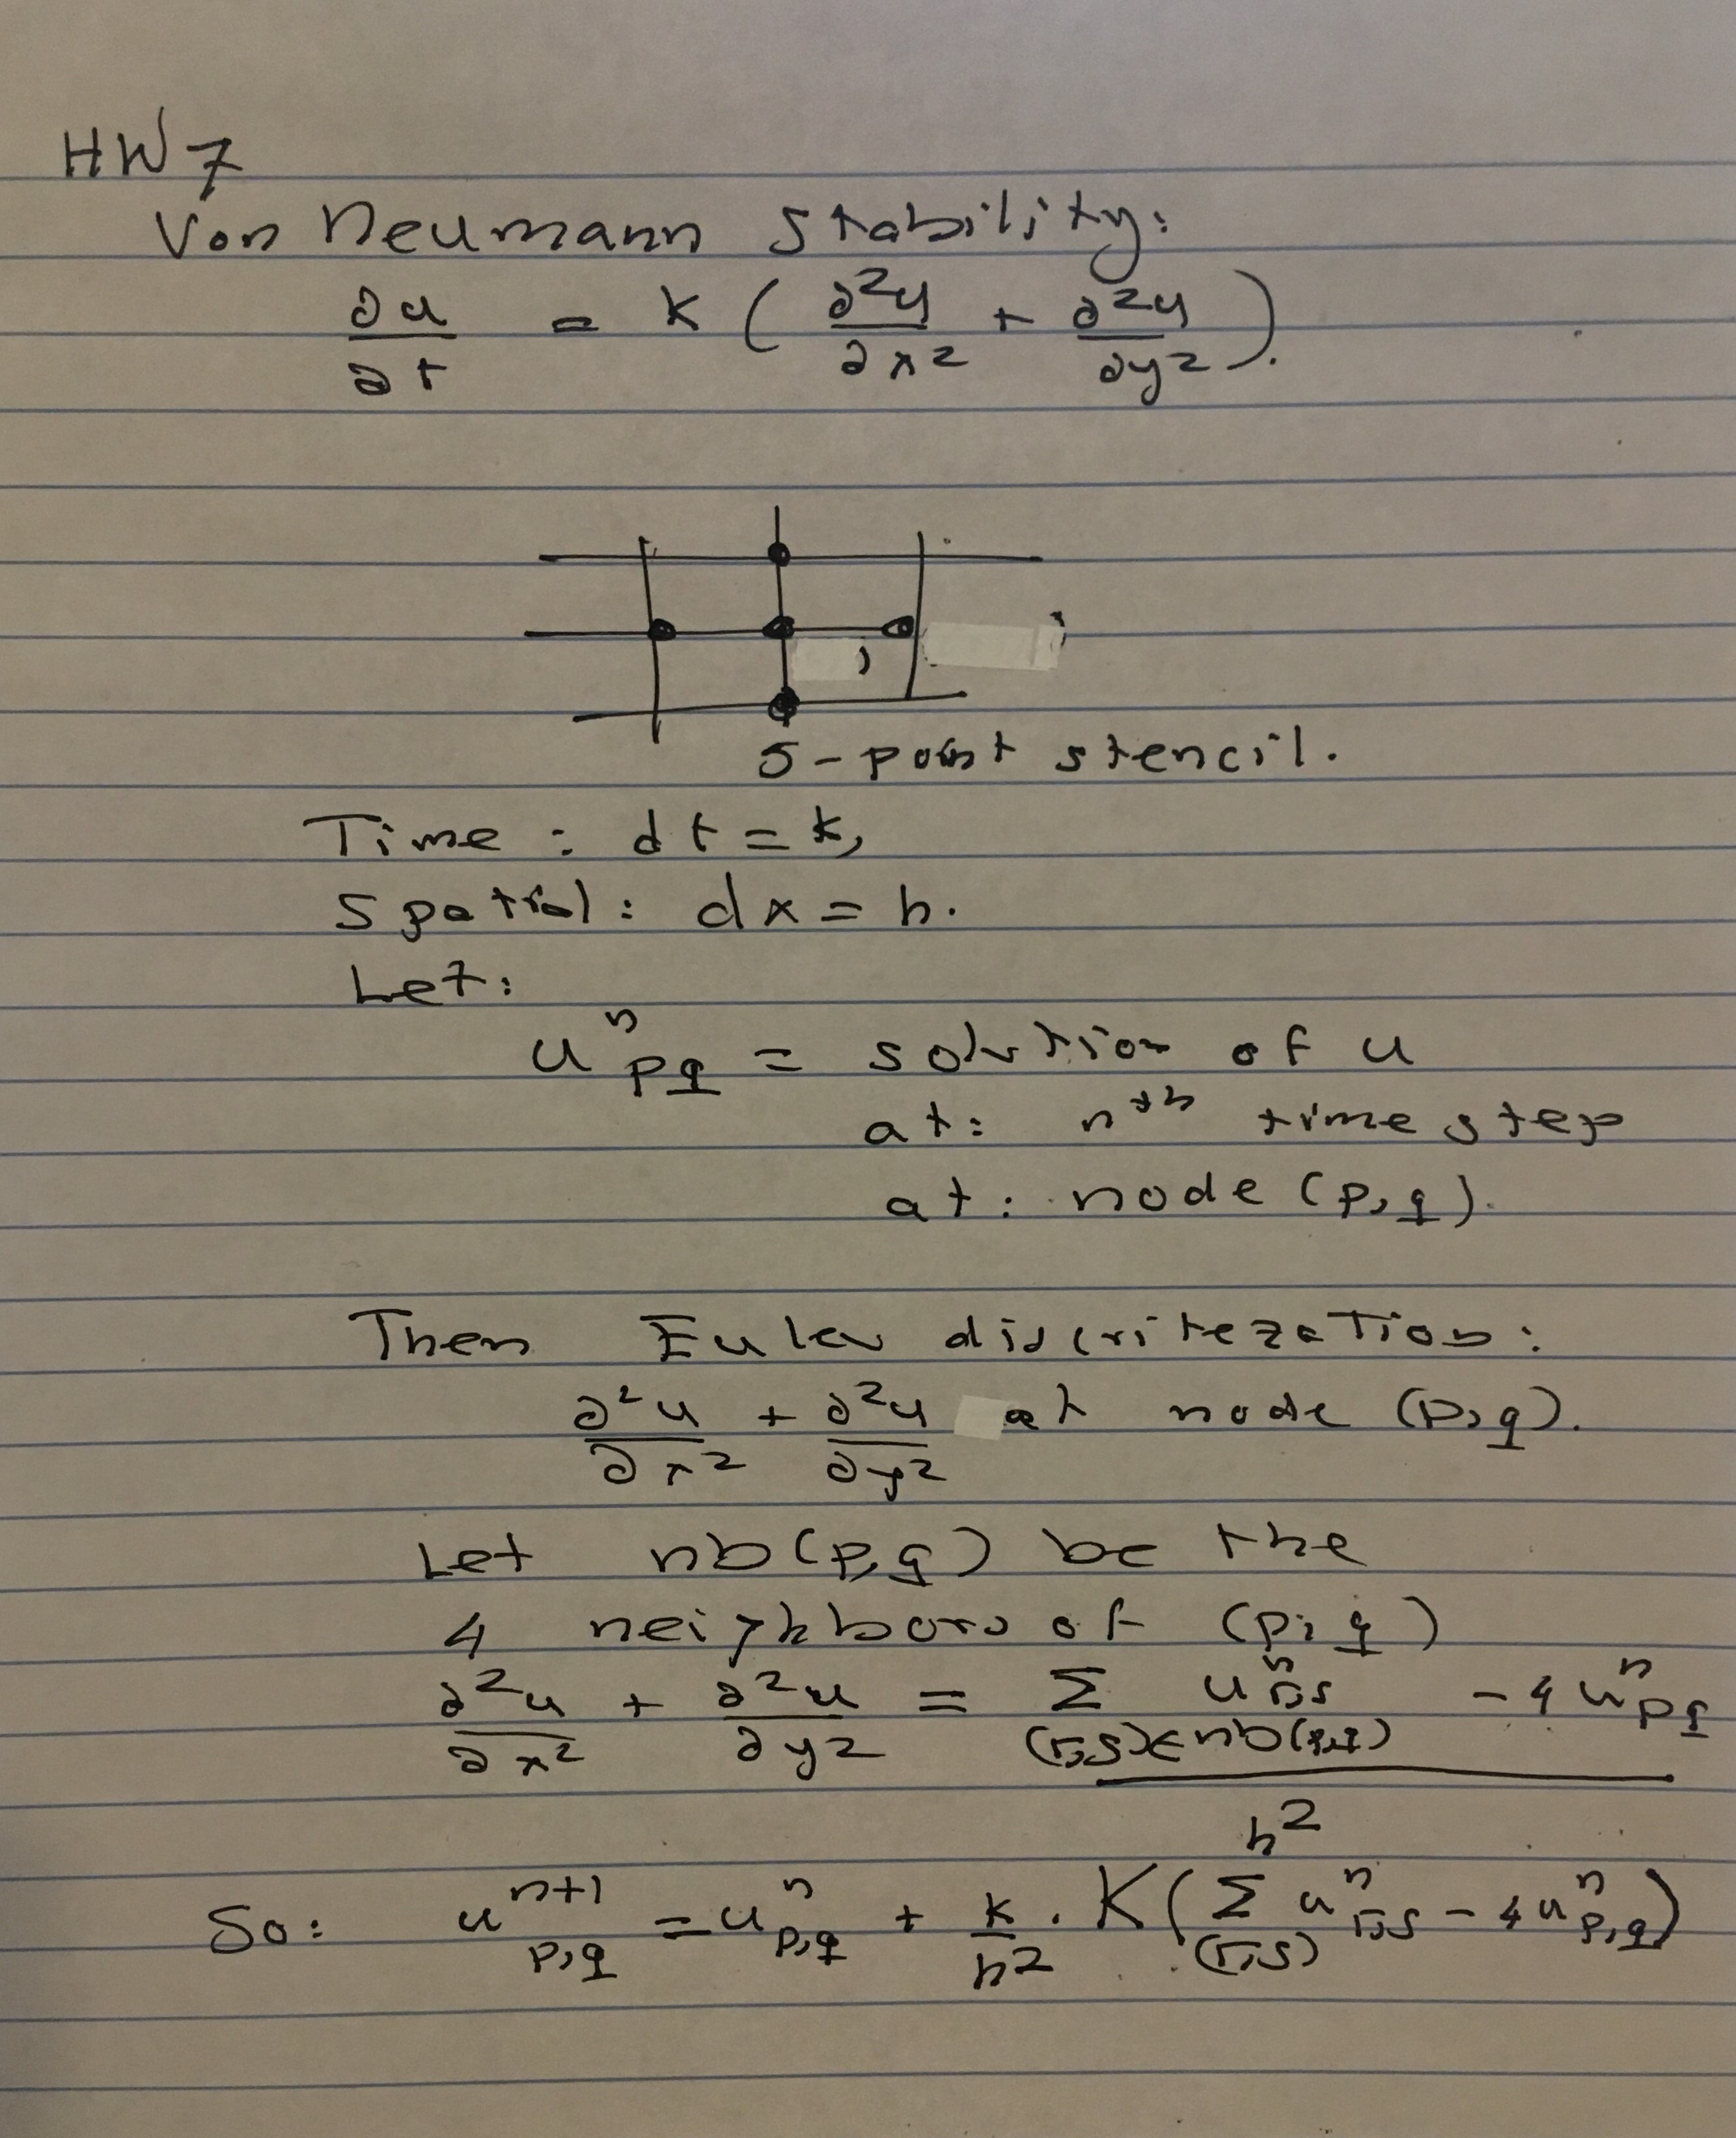 HW 7
Von Neumann Stability:
∂u/∂t = K (∂²u/∂x² + ∂²u/∂y²).
5-point stencil.
Time : dt = k,
Spatial: dx = h.
Let:
u^n_pq = solution of u
at: n^th time step
at: node (p,q).
Then Euler discritezation:
∂²u/∂x² + ∂²u/∂y² at node (p,q).
Let nb(p,q) be the
4 neighbors of (p,q)
∂²u/∂x² + ∂²u/∂y² = Σ_{(r,s)∈nb(p,q)} u^n_{r,s} - 4u^n_{pq}
h²
So: u^{n+1}_{p,q} = u^n_{p,q} + k/h² . K(Σ_{(r,s)} u^n_{r,s} - 4u^n_{p,q})